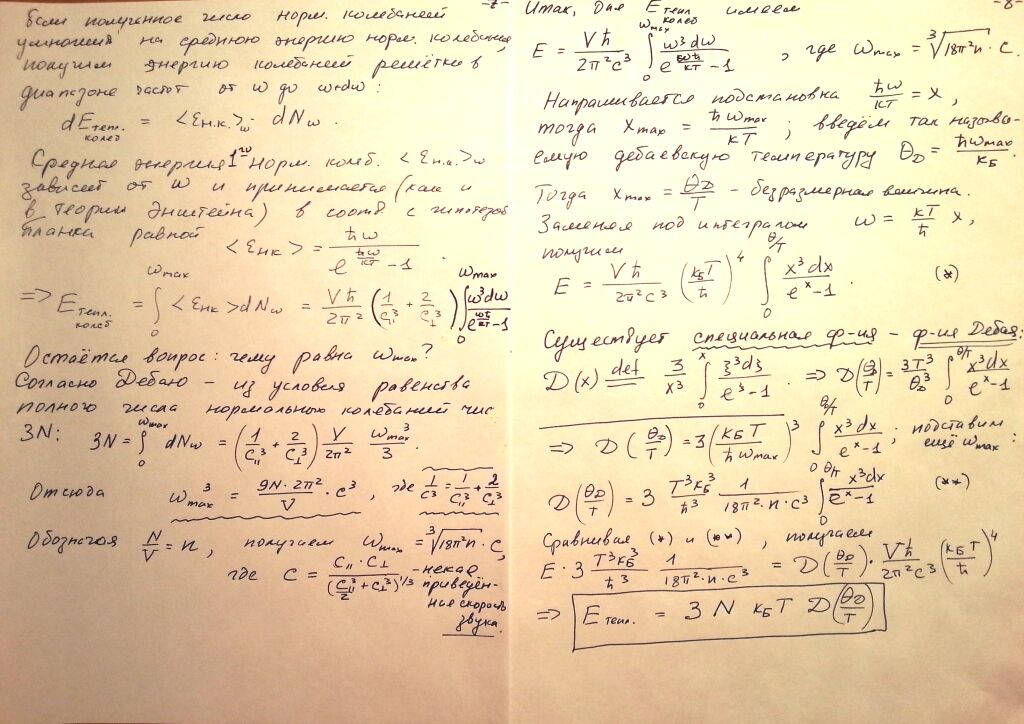 -7-
Если полученное число норм. колебаний
умножить на среднюю энергию норм. колебания,
получим энергию колебаний решётки в
диапазоне частот от ω до ω+dω:
dE тепл. колеб = <ε н.к.>ω · dNω.
Средняя энергия 1го норм. колеб. <ε н.к.>ω
зависит от ω и принимается (как и
в теории Энштейна) в соотв. с гипотезой
Планка равной <ε нк> = ħω / (e^(ħω/кТ) − 1).
=> E тепл. колеб = ∫₀^ωmax <ε нк> dNω = Vħ/2π² (1/C∥³ + 2/C⊥³) ∫₀^ωmax ω³dω / (e^(ωħ/кТ) − 1)
Остаётся вопрос: чему равна ωmax?
Согласно Дебаю – из условия равенства
полного числа нормальных колебаний чис
3N: 3N = ∫₀^ωmax dNω = (1/C∥³ + 2/C⊥³) V/2π² ωmax³/3.
Отсюда ωmax³ = 9N·2π²/V · c³, где 1/c³ = 1/C∥³ + 2/C⊥³
Обозначая N/V = n, получаем ωmax = ∛(18π²n) · C,
где C = C∥·C⊥ / (C∥³/2 + C⊥³)^(1/3) - некая
приведён-
ная скорость
звука.
-8-
Итак, для E тепл колеб имеем
E = Vħ/2π²c³ ∫₀^ωmax ω³dω / (e^(ωħ/кТ) − 1), где ωmax = ∛(18π²n) · c.
Напрашивается подстановка ħω/кТ = x,
тогда xmax = ħωmax/кТ; введём так называ-
емую дебаевскую температуру θD = ħωmax/кБ.
Тогда xmax = θD/T – безразмерная величина.
Заменяя под интегралом ω = кТ/ħ x,
получим
E = Vħ/2π²c³ (кБТ/ħ)⁴ ∫₀^θ/T x³dx / (eˣ − 1) (*)
Существует специальная ф-ия – ф-ия Дебая:
D(x) def 3/x³ ∫₀^x ξ³dξ / (e^ξ − 1). => D(θ/T) = 3T³/θD³ ∫₀^θ/T x³dx / (eˣ − 1)
=> D(θD/T) = 3(кБТ/ħωmax)³ ∫₀^θD/T x³dx / (eˣ − 1); подставим
ещё ωmax:
D(θD/T) = 3 T³кБ³/ħ³ 1/(18π²·n·c³) ∫₀^θ/T x³dx / (eˣ − 1) (**)
Сравнивая (*) и (**), получаем
E · 3 T³кБ³/ħ³ 1/(18π²·n·c³) = D(θD/T) · Vħ/2π²c³ (кБТ/ħ)⁴
=> E тепл. = 3 N кБТ D(θD/T)